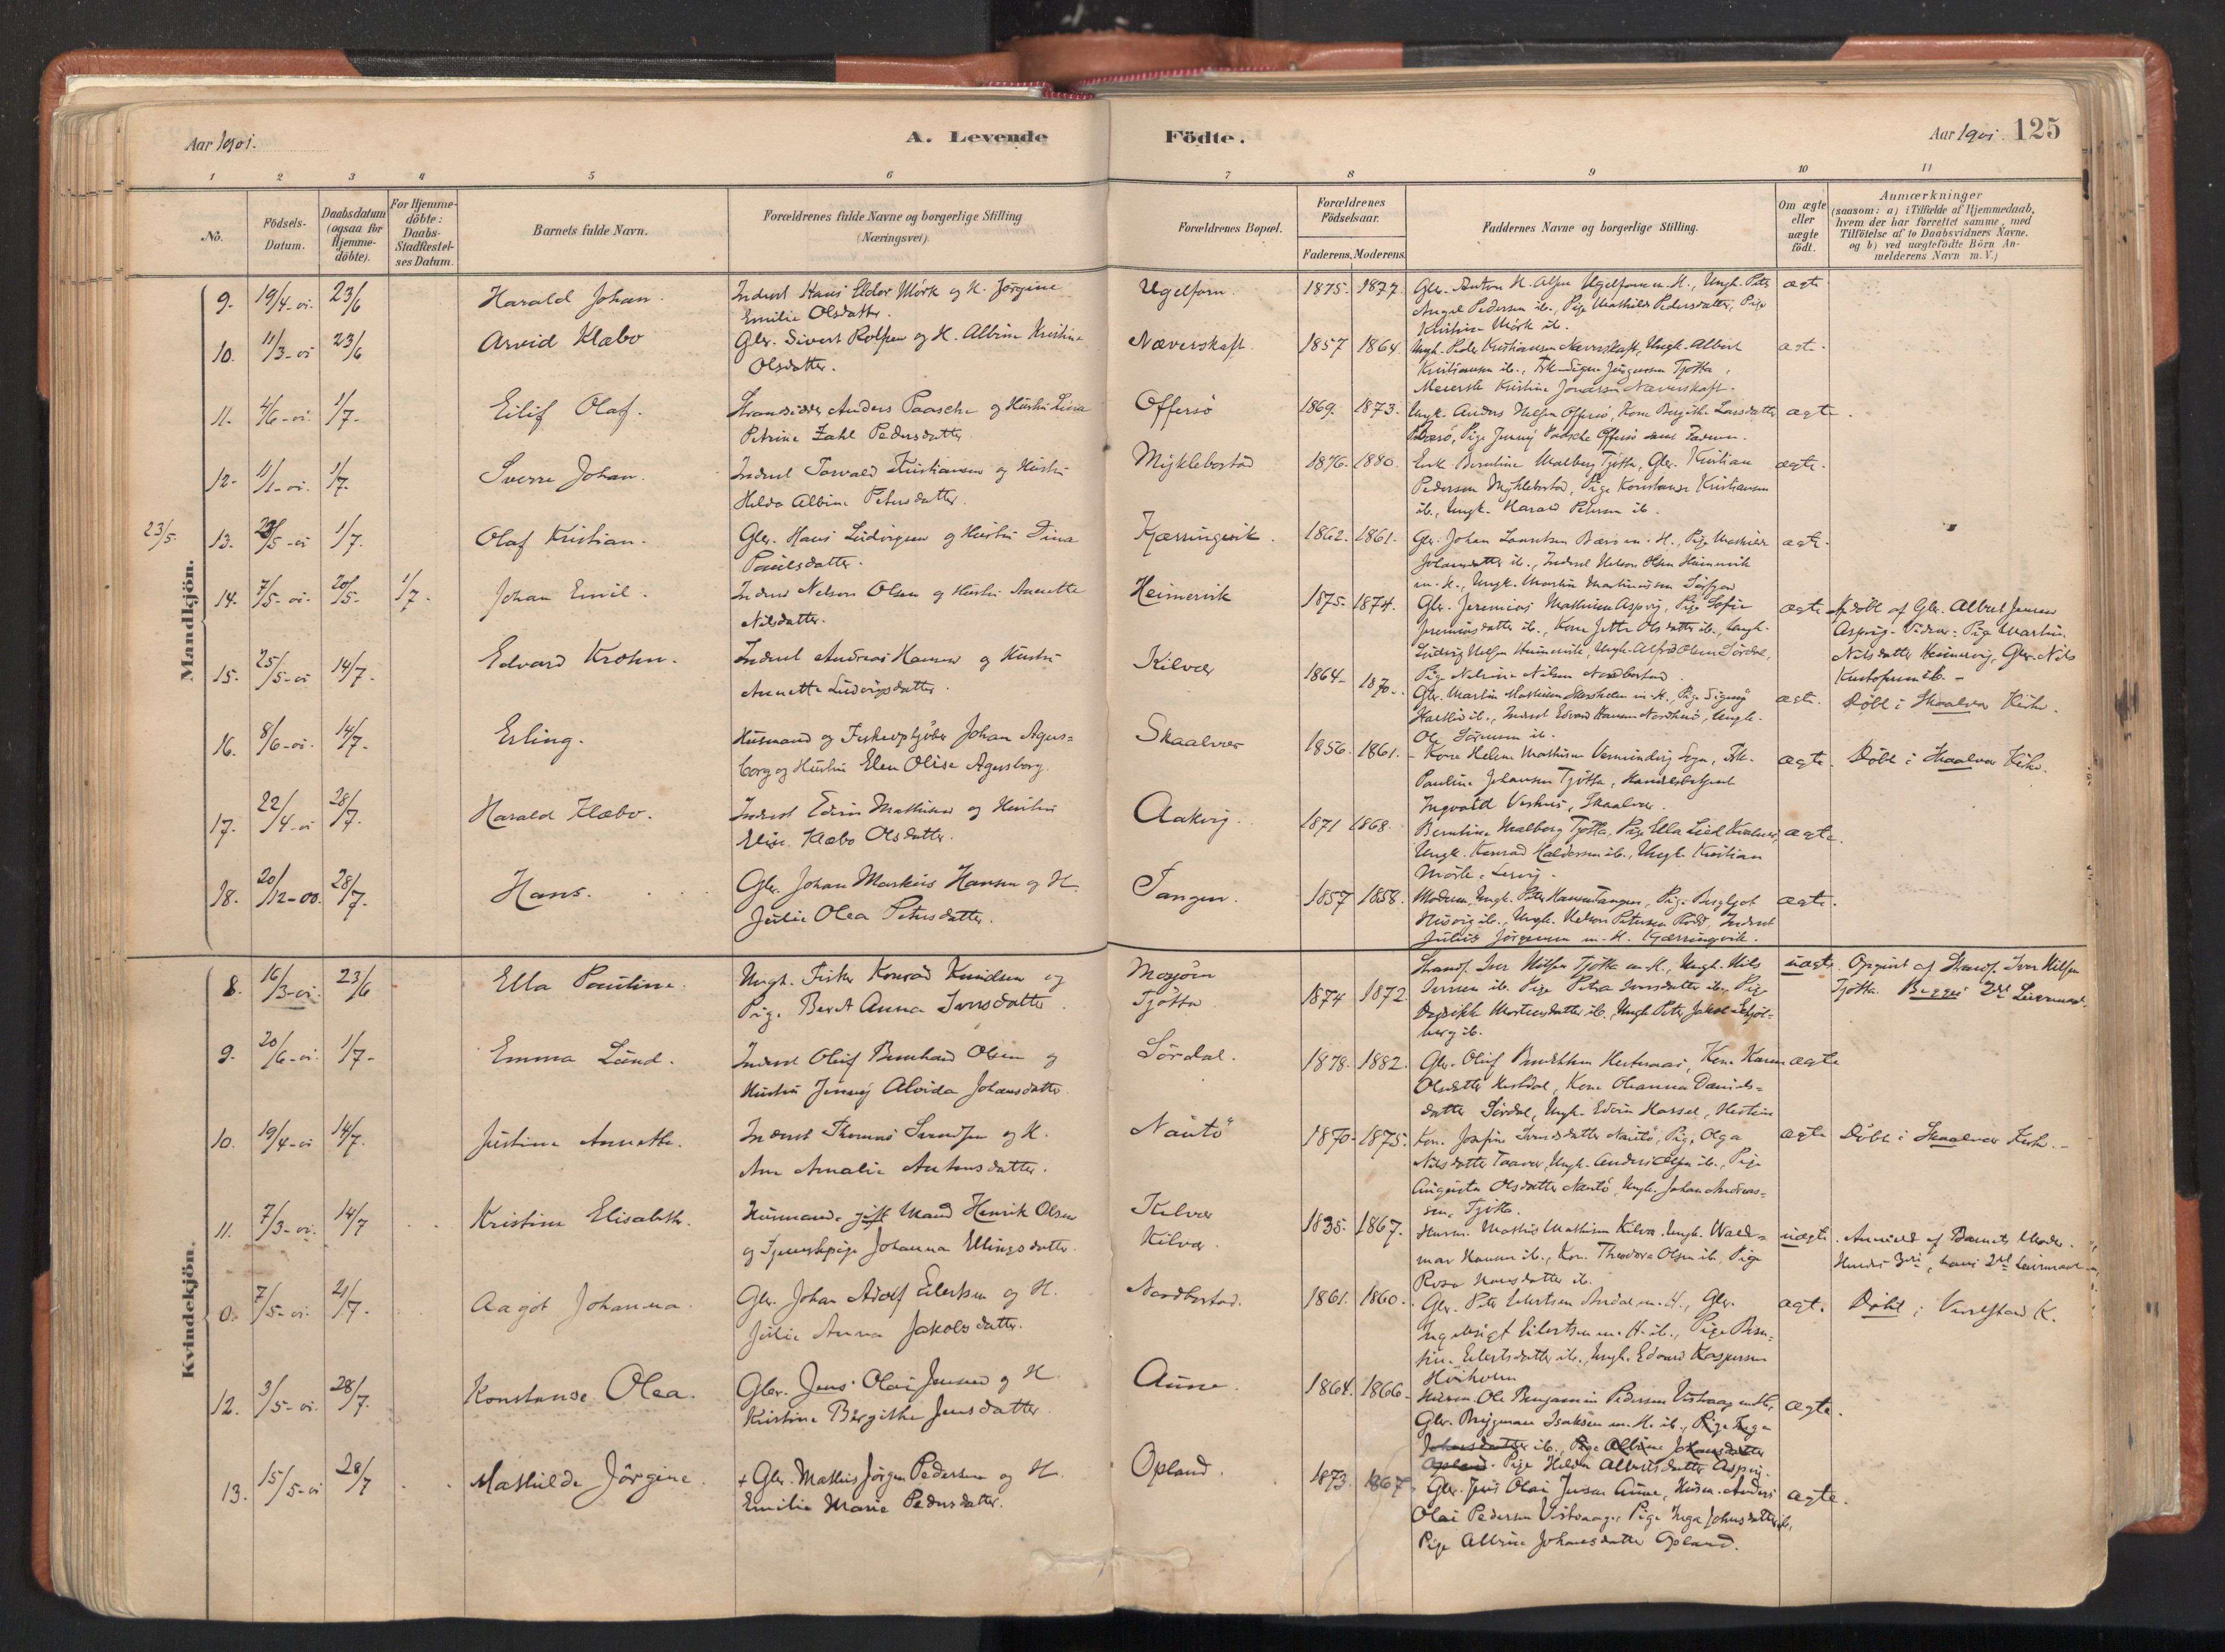 Aar 1901.
A. Levende
Födte.
Aar 1901. 125
1 2 3 4 5 6 7 8 9 10 11
No.
Födsels-
Datum.
Daabsdatum
(ogsaa for
Hjemme-
döbte).
For Hjemme-
döbte:
Daabs-
Stadfæstel-
ses Datum.
Barnets fulde Navn.
Forældrenes fulde Navne og borgerlige Stilling
(Næringsvei).
Forældrenes Bopæl.
Forældrenes
Födselsaar.
Faderens. Moderens.
Faddernes Navne og borgerlige Stilling.
Om ægte
eller
uægte
födt.
Anmærkninger
(saasom: a) i Tilfælde af Hjemmedaab,
hvem der har forrettet samme, med
Tilföielse af to Daabsvidners Navne,
og b) ved uægtefödte Börn An-
melderens Navn m. V.)
Mandkjön.
9. 19/4-01. 23/6 Harald Johan.
Inderst Hans Elder Mörk og H. Jörgine
Emilie Olsdatter.
Ugelforn. 1875. 1877.
Kristine Mörk ib.
ægte
10. 11/3-01 23/6 Arvid Klæbo
Gbr. Sivert Rolfsen og H. Albine Kristine
Olsdatter.
Næverskaft. 1857 1864.
Ungk. Peder Kristiansen Næverskaft, Ungk. Albert
Kristiansen ib., Frk. Signe Jürgensen Tjötta,
Meierske Kristine Jonassen Næverskaft.
ægte.
11. 4/6-01. 1/7- Eilif Olaf.
Strandsidder Anders Paasche og Hustru Lina
Petrine Zahl Pedersdatter
Offersö 1869. 1873.
Ungk. Anders Nelsen Offersö, Kone Birgithe Larsdatter
Pige Jenny Paasche Offersö samt Faderen.
ægte.
12. 11/1-01. 1/7. Sverre Johan.
Inderst Torvald Kristiansen og Hustru
Hilda Albine Petersdatter.
Mykleborstad 1876. 1880.
Enke Berntine Walberg Tjötta, Gbr. Kristian
Pedersen Mykleborstad, Pige Konstanse Kristiansen
ib., Ungk. Harald Petersen ib.
ægte.
23/5. 13. 23/5-01 1/7. Olaf Kristian.
Gbr. Hans Ludvigsen og Hustru Dina
Paulsdatter.
Kjærringvik. 1862. 1861.
Gbr. Johan Lauritsen Bærö m. H., Pige Mathilde
Johansdatter ib., Inderst Nelson Olsen Heimervik
m. H., Ungk. Martin Martinussen
ægte.
14. 7/5-01. 20/5- 1/7. Johan Emil.
Inderst Nelson Olsen og Hustru Annette
Nilsdatter.
Heimervik 1875. 1874.
Gbr. Jeremias Mathisen Aspvig, Pige Sofie
Jeremiasdatter ib., Kone Jette Olsdatter ib., Ungk.
Ludvig Nelsen Heimervik, Ungk. Alfred Olsen Sördal,
Pige Nelsine Nilsen Nordborstad.
ægte
Hjdöbt af Gbr. Albert Jensen
Aspvig. Vidner: Pige Martine
Nilsdatter Heimervig, Gbr. Nils
Kristofersen ib. -
15. 25/5-01 14/7. Edvard Krohn.
Inderst Andreas Hansen og Hustru
Annette Ludvigsdatter.
Kilvær 1864- 1870.
Ole Sörensen ib.
ægte.
Döbt i Skaalvær Kirke.
16. 8/6-01. 14/7. Erling.
Husmand og Fiskeopkjöber Johan Agers-
borg og Hustru Elen Olise Agersborg.
Skaalvær 1856. 1861.
Pauline Johansen Tjötta, Handelsbetjent
Ingvald Skaalvær.
ægte.
Döbt i Skaalvær Kirke.
17. 22/4-01 28/7. Harald Klæbo.
Inderst Edvin Mathisen og Hustru
Elise Klæbo Olsdatter.
Aakvig. 1871 1868.
Berntine Walberg Tjötta, Pige Ella Lied
Ungk. Konrad Haldersen ib., Ungk. Kristian
Mörk
ægte.
18. 20/12-00. 28/7. Hans.
Gbr. Johan Markus Hansen og H.
Julie Olea Petersdatter.
Tangen. 1857 1858.
Moderen, Ungk. Peter Hansen Tangen, Pige Bergljot
Husvig ib., Ungk. Nelson Petersen Rödö, Inderst
Julius Jörgensen m. H. Kjærringvik.
ægte.
Kvindekjön.
8. 16/3-01. 23/6 Ella Pauline.
Ungk. Fisker Konrad Knudsen og
Pige Beret Anna Iversdatter.
Mosjöen
Tjötta 1874 1872
Strands. Iver Nilsen Tjötta m. H., Ungk. Nils
Iversen ib. Pige Petra Iversdatter ib., Pige
Mortensdatter ib., Ungk. Peter Jakob
berg ib.
uægte.
Opgivet af Strands. Iver Nilsen
Tjötta. Begges 2det Leiermaal.
9. 20/6-01. 1/7- Emma Lund.
Inderst Oluf Bernhard Olsen og
Hustru Jenny Alvida Johansdatter
Sördal. 1878. 1882.
Gbr. Oluf Benediktsen Hestemaas, Kone Karen
Olsdatter Kone Oleanna Daniels-
datter Sördal, Ungk. Edvin
ægte
10. 19/4-01 14/7. Justine Annette.
Inderst Thomas Svendsen og H.
Ane Amalie Antonsdatter.
Nautö 1870- 1875.
Kone Josefine Svendsdatter Nautö, Pige Olga
Nilsdatter Taavær, Ungk. Anders Olsen ib., Pige
Augusta Olsdatter Nautö, Ungk. Johan Andreas-
sen, Tjötta.
ægte
Döbt i Skaalvær Kirke. -
11. 7/3-01. 14/7 Kristine Elisabeth.
Husmand gift Mand Henrik Olsen
og Tjenestepige Johanna Ellingsdatter.
Kilvær
Kilvær. 1835. 1867.
Husm. Mathis Mathisen Kilvær, Ungk. Walde-
mar Hansen ib., Kone Theodora Olsen ib., Pige
Rosa Hansdatter ib.
uægte.
Anmeldt af Barnets Moder.
Hendes 3die, hans 2det Leiermaal
0. 7/5-01. 21/7. Aagot Johanna.
Gbr. Johan Adolf Eilertsen og H.
Julie Anna Jakobsdatter.
Nordborstad. 1861. 1860.
Gbr. Peter Eilertsen m. H., Gbr.
Ingebrigt Eilertsen m. H. ib., Pige Bern-
tine Eilertsdatter ib., Ungk. Edvard Kaspersen
Höiholm
ægte.
Döbt i Vevelstad K.
12. 3/5-01. 28/7. Konstanse Olea.
Gbr. Jens Olai Jensen og H.
Kristine Birgithe Jensdatter.
Aune. 1864. 1866.
Husm. Ole Benjamin Pedersen Vistvaag m. H.,
Gbr. Brygman Isaksen m. H. ib., Pige Inga
Johansdatter ib., Pige Albine Johansdatter
Opland. Pige Hilda Albertsdatter Aspvig.
ægte.
13. 15/5-01 28/7 Mathilde Jörgine.
+ Gbr. Mathis Jörgen Pedersen og H.
Emilie Marie Pedersdatter.
Opland. 1873. 1867.
Gbr. Jens Olai Jensen Aune, Husm. Anders
Olai Pedersen Vistvaag, Pige Inga Johansdatter ib.,
Pige Albine Johansdatter Opland.
ægte.